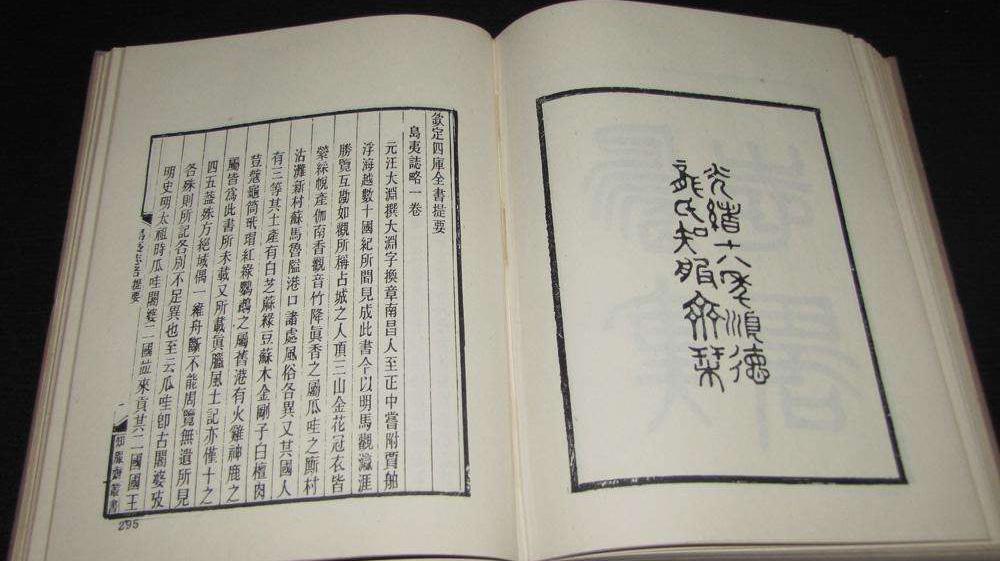 光緒十八季順德
龍氏知服齋栞
欽定四庫全書提要
島夷誌略一卷
元汪大淵撰大淵字換章南昌人至正中嘗附賈舶
浮海越數十國紀所聞見成此書今以明馬觀瀛涯
勝覽互勘如觀所稱占城之人頂三山金花冠衣皆
縈綵帨產伽南香觀音竹降眞香之屬瓜哇之厮村
沽灘新村蘇馬魯隘港口諸處風俗各異又其國人
有三等其土產有白芝蔴綠豆蘇木金剛子白檀肉
荳蔻龜筒玳瑁紅綠鸚鵡之屬舊港有火雞神鹿之
屬皆爲此書所未載又所載眞臘風土記亦僅十之
四五葢殊方絕域偶一維舟斷不能周覽無遺所見
各殊則所記各別不足異也至云瓜哇卽古闍婆攷
明史明太祖時瓜哇闍婆二國竝來貢其二國國王
提要
一
知服齋叢書
295